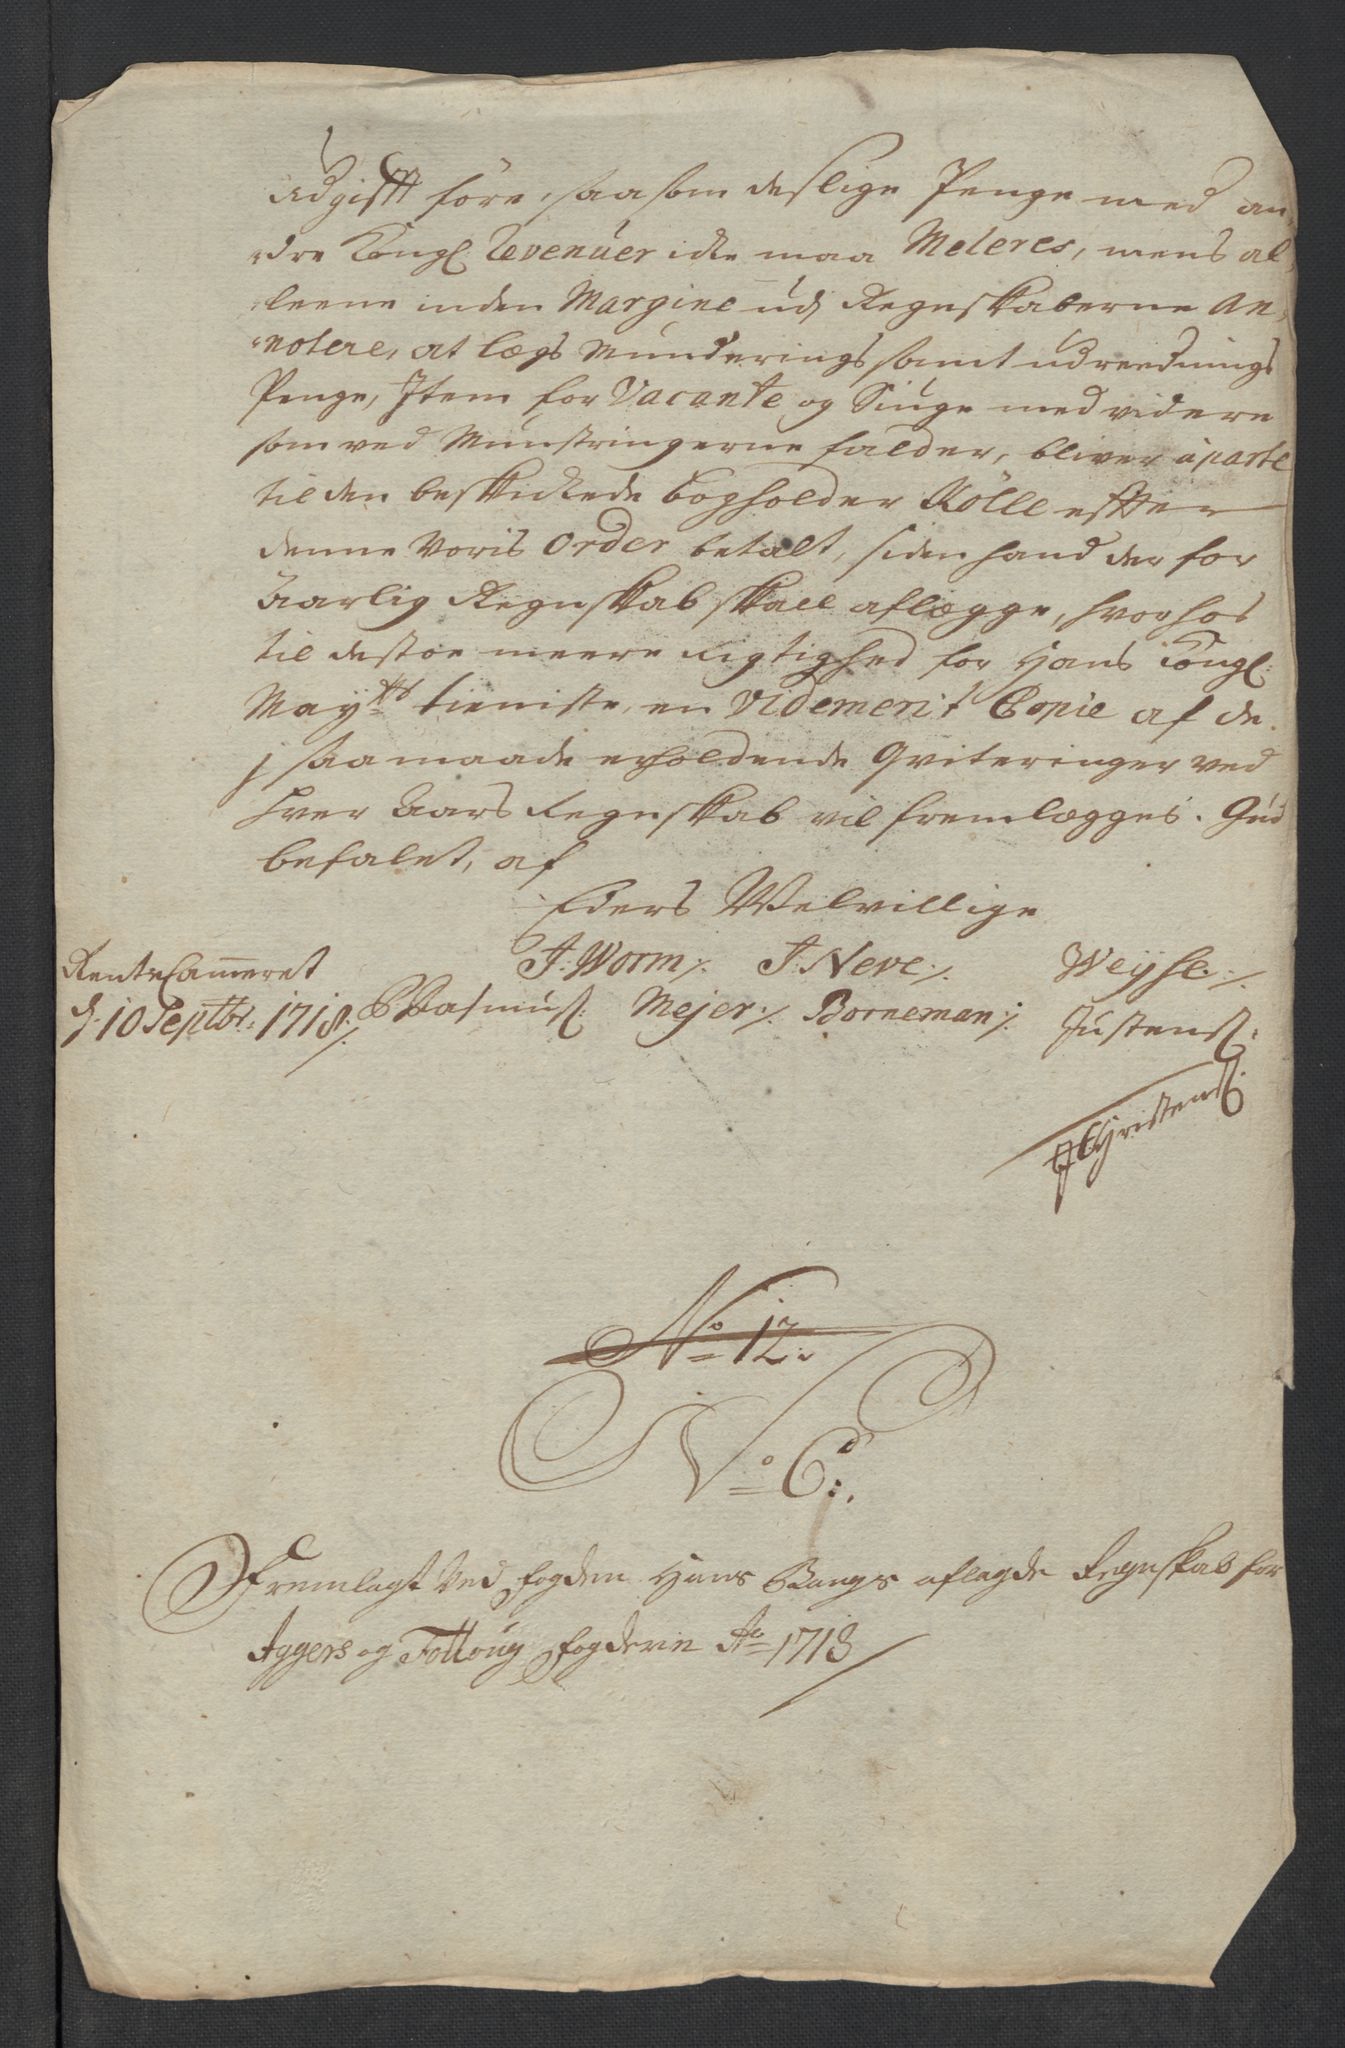 udgifft före, saasom deslige Penge med an-
dre Kongl Revenuer icke maa Meleres, mens al-
leene inden Margine udj Regnskaberne An-
notere, at Lægs Munderings samt udreednings
Penge, Item for Vacante og Siuge med videre
som ved Munstringerne falder, bliver àparte
til den beskickede Bogholder Rölle effter
denne Voris Order betalt, siden hand der for
Aarlig Regnskab skall aflægge, hvorhos
til destoe meere Rigtighed for Hans Kongl:
Mayts tieniste, en Videmerit Copie af de
j saamaade erholdende Qviteringer ved
hver Aars Regnskab vil fremlægges. Gud
befalet, af
Eders Velvillige
J: Worm /. J: Neve /. Weyse /.
RenteCammeret
d: 10 Septbr: 1718 /. Rasmus: Mejer /. Borneman /. Justens:
Christens:
No 12.
No 6:
Fremlagt Ved fogden Hans Bangs aflagde Regnskab for
Aggers og Folloug fogderie Ao 1718